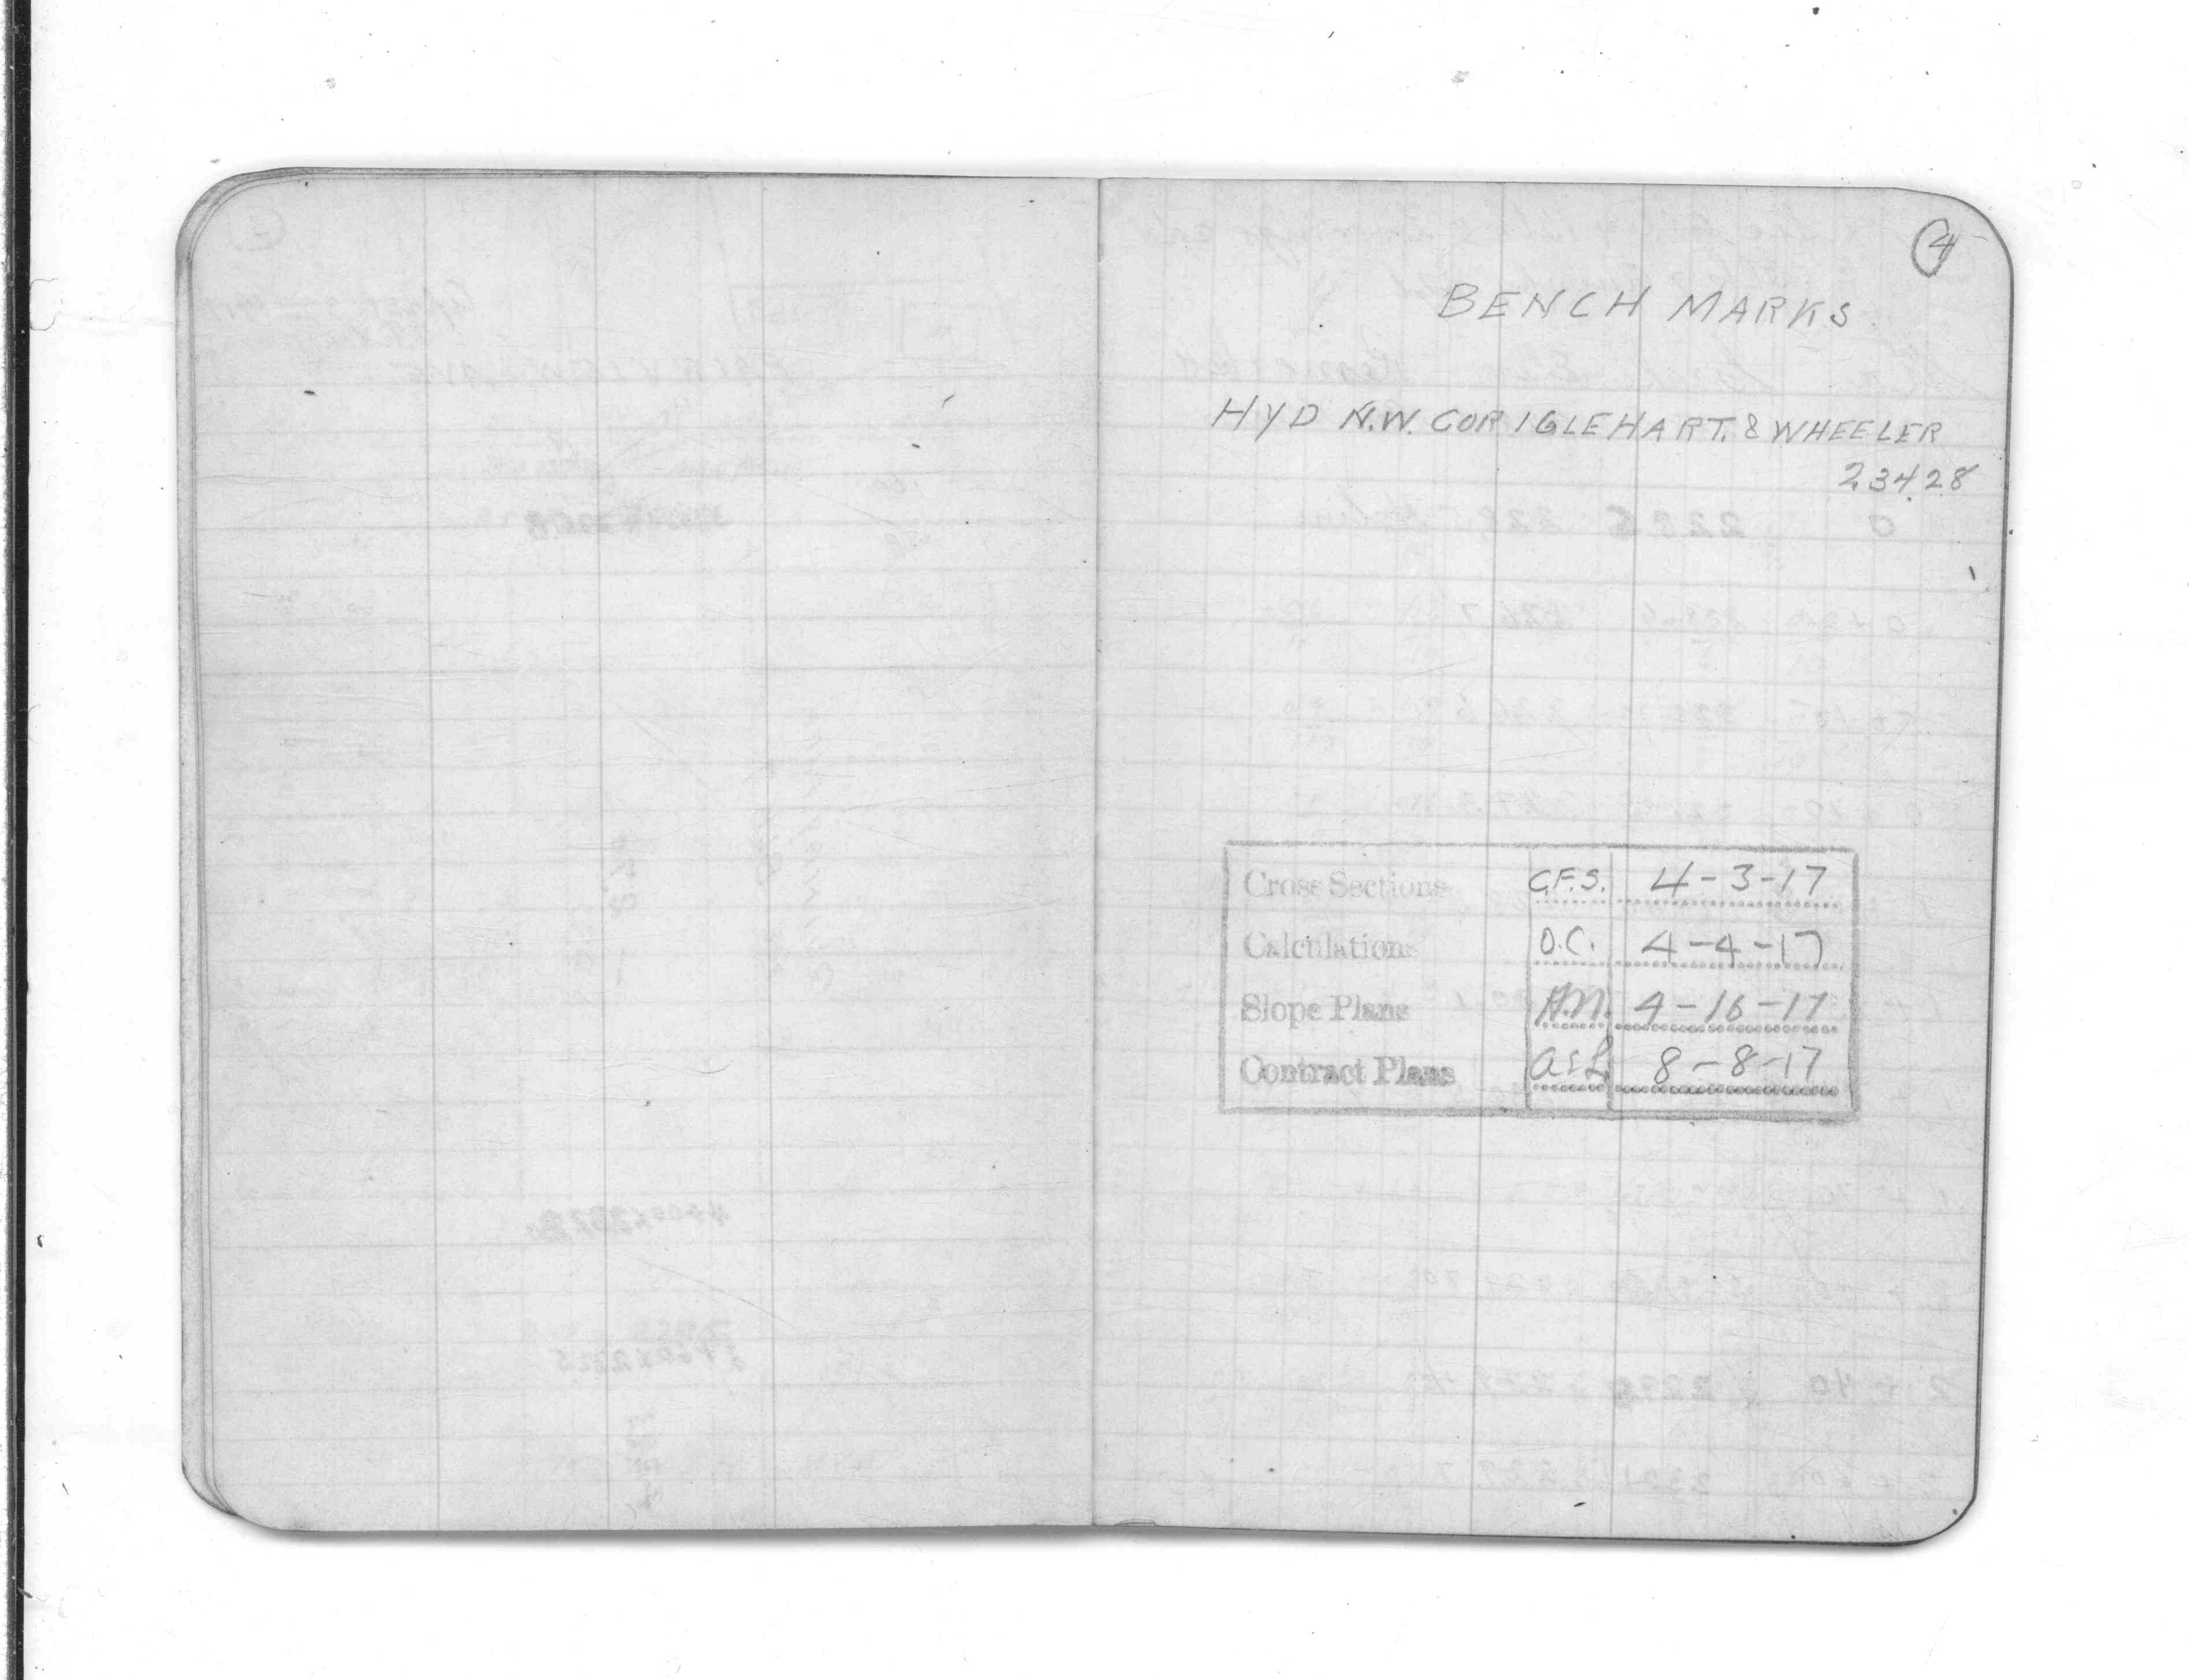 4
BENCH MARKS
HYD N.W. COR IGLEHART. & WHEELER
234.28
Cross Sections C.F.S. 4-3-17
Calculations O.C. 4-4-17
Slope Plans A.M. 4-16-17
Contract Plans 8-8-17